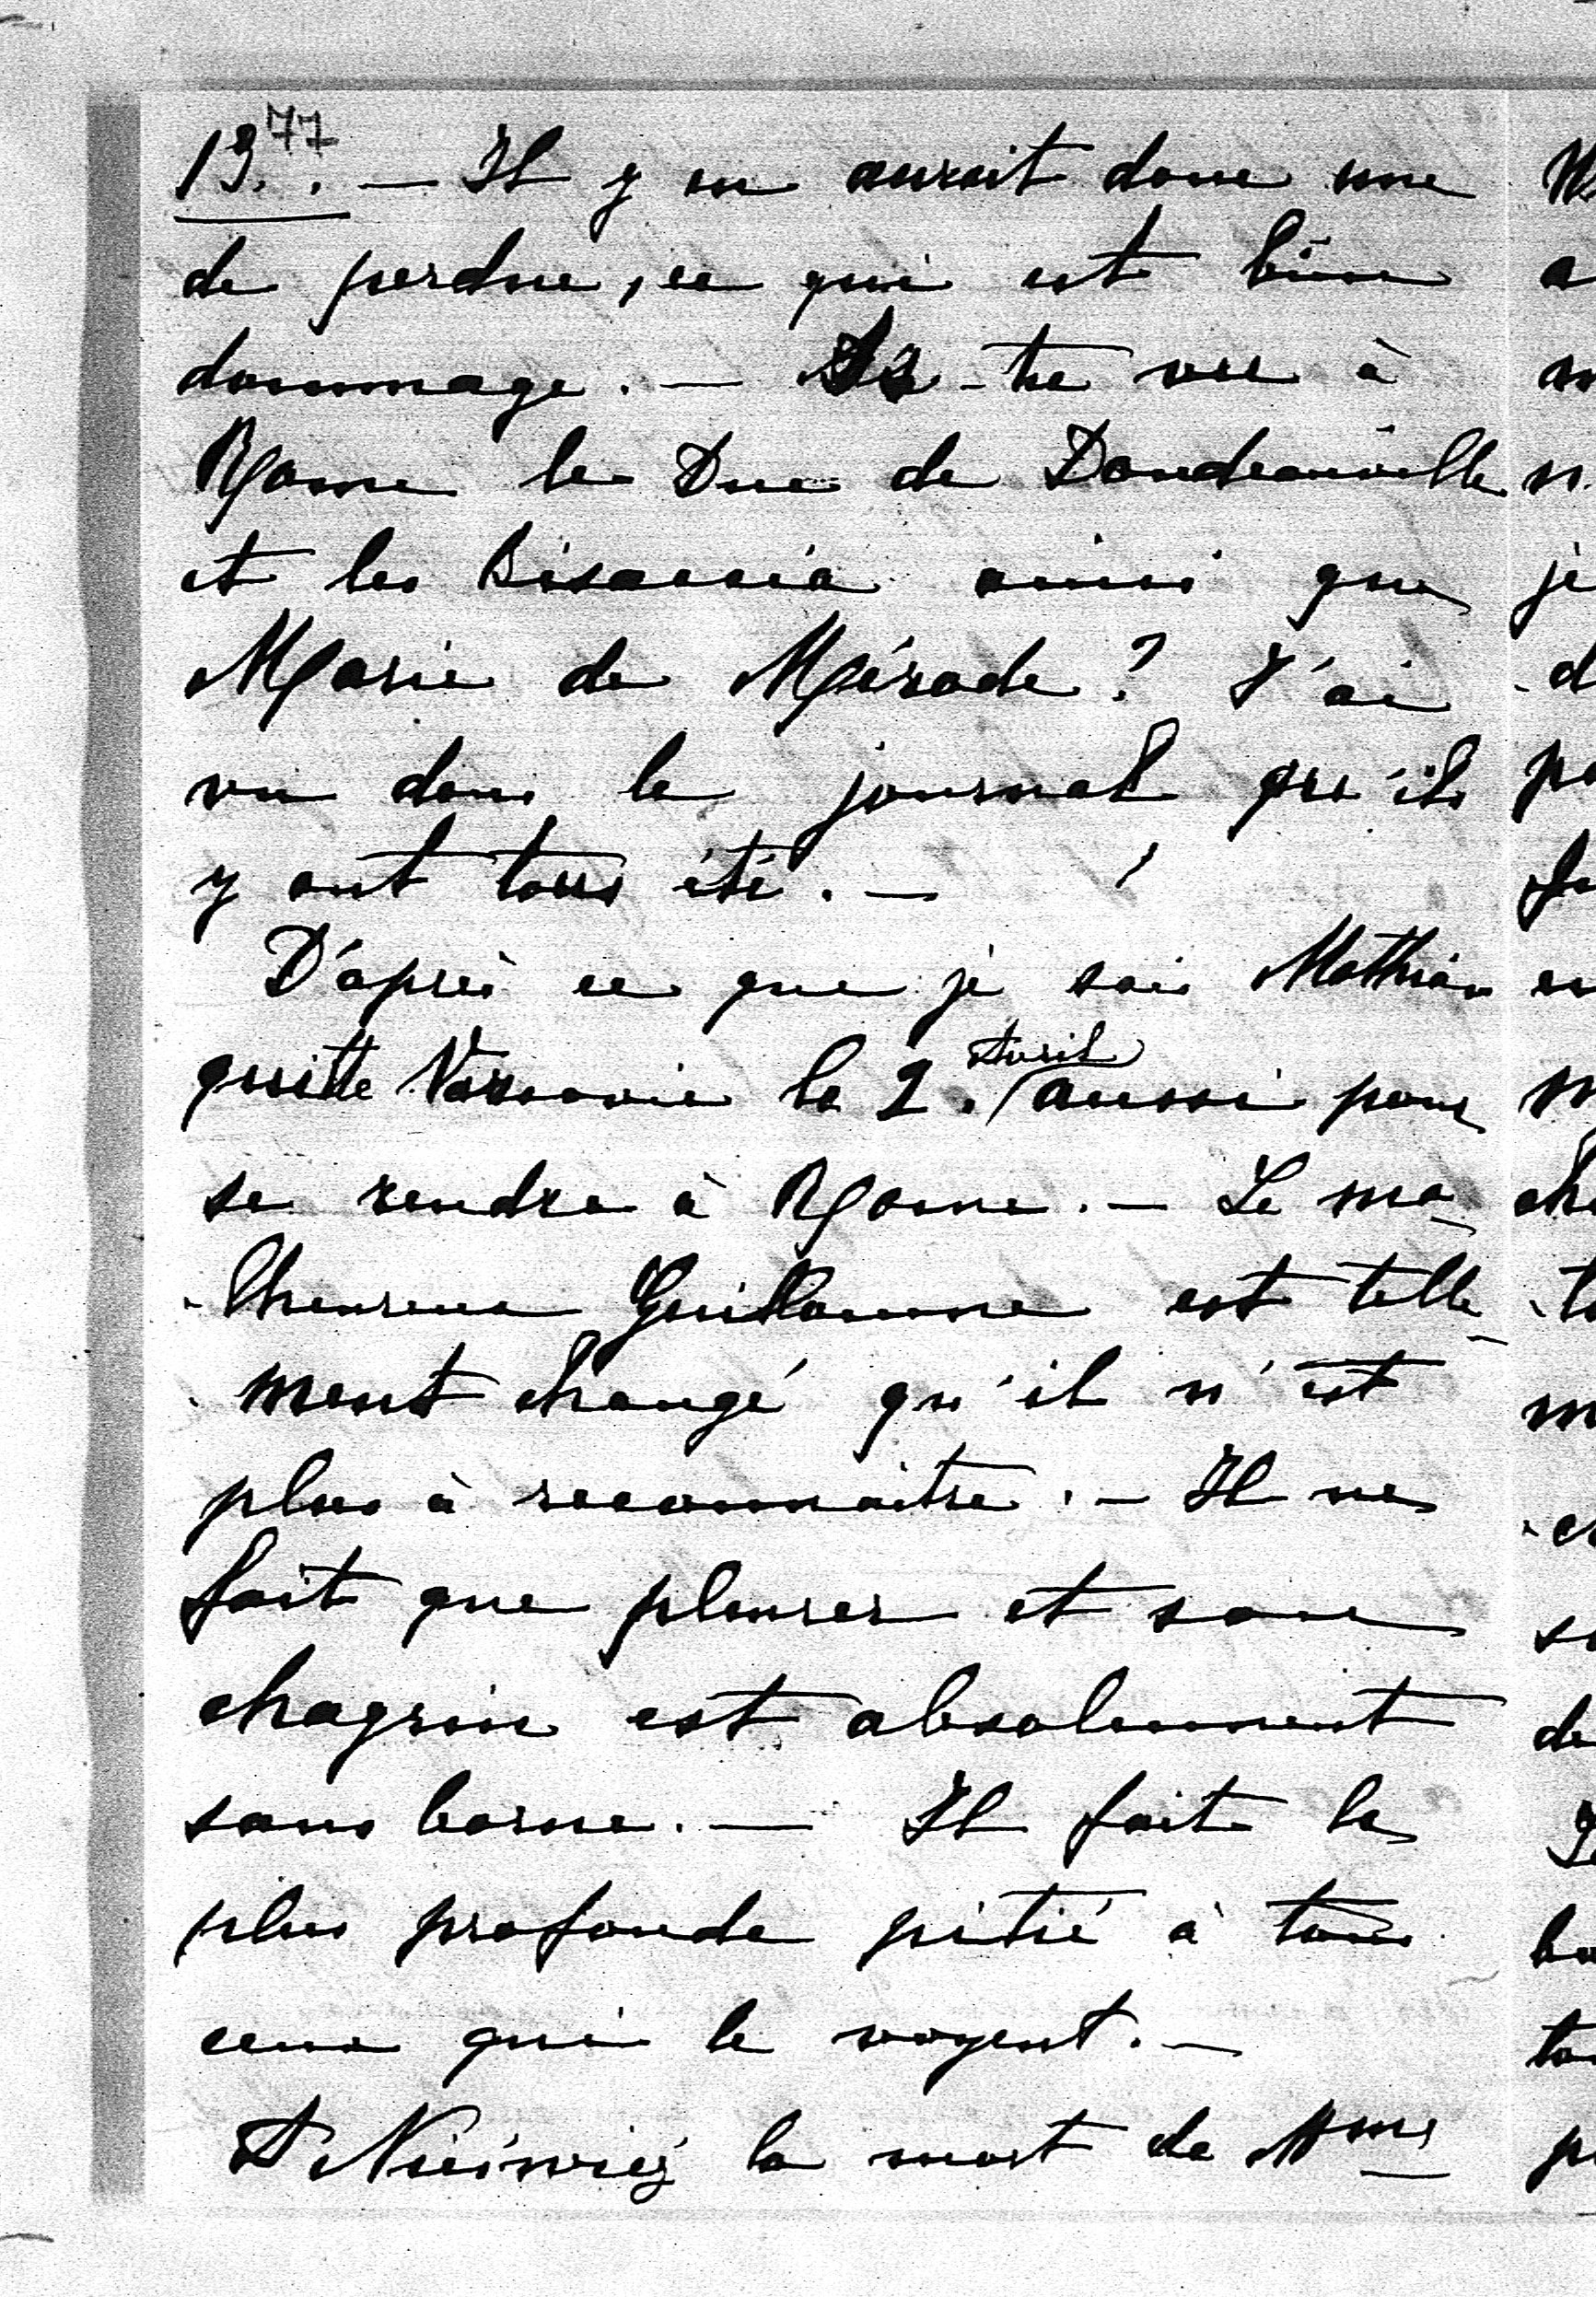 77
13. . — Il y en aurait donc une
de perdue, ce qui est bien
dommage. — As-tu vu à
Rome le Duc de Doudeauville
et les Bisaccia ainsi que
Marie de Mérode? J'ai
vu dans le journal qu'ils
y ont tous été. —
D'après ce que je sais Mathias
Avril
quitte Varsovie le 2. / aussi pour
se rendre à Rome. — Le ma-
-lheureux Guillaume est telle-
-ment changé qu'il n'est
plus à reconnaitre. — Il ne
fait que pleurer et son
chagrin est absolument
sans borne. — Il fait la
plus profonde pitié à tous
ceux qui le voyent. —
A Nieśwież la mort de Mme